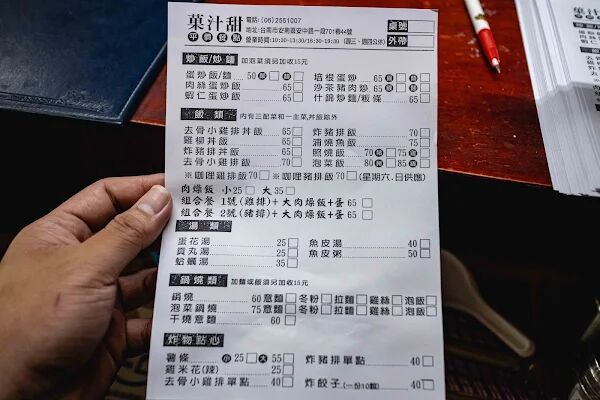 菓汁甜 電話:(06)2551007 桌號
平價餐點 地址:台南市安南區安中路一段701巷44號 外帶
營業時間:10:30-13:30/16:30-19:30 (週三、週四公休)
炒飯/炒麵 加泡菜須另加收15元
蛋炒飯/麵 50 培根蛋炒 65
肉絲蛋炒飯 65 沙茶豬肉炒 65
蝦仁蛋炒飯 65 什錦炒麵/粄條 65
飯類 內有三配菜和一主菜,丼飯除外
去骨小雞排丼飯 65 炸豬排飯 70
雞柳丼飯 65 浦燒魚飯 75
炸豬排丼飯 65 照燒飯 70 75
去骨小雞排飯 70 泡菜飯 80 85
※咖哩雞排飯70 ※咖哩豬排飯70 (星期六.日供應)
肉燥飯 小25 大35
組合餐 1號(雞排)+大肉燥飯+蛋 65
組合餐 2號(豬排)+大肉燥飯+蛋 65
湯類
蛋花湯 25 魚皮湯 40
貢丸湯 25 魚皮粥 50
蛤蠣湯 35
鍋燒類 加麵或飯須另加收15元
鍋燒 60 意麵 冬粉 拉麵 雞絲 泡飯
泡菜鍋燒 75 意麵 冬粉 拉麵 雞絲 泡飯
干燒意麵 60
炸物點心
薯條 小 25 大 55 炸豬排單點 40
雞米花(辣) 25
去骨小雞排單點 40 炸餃子(一份10顆) 40